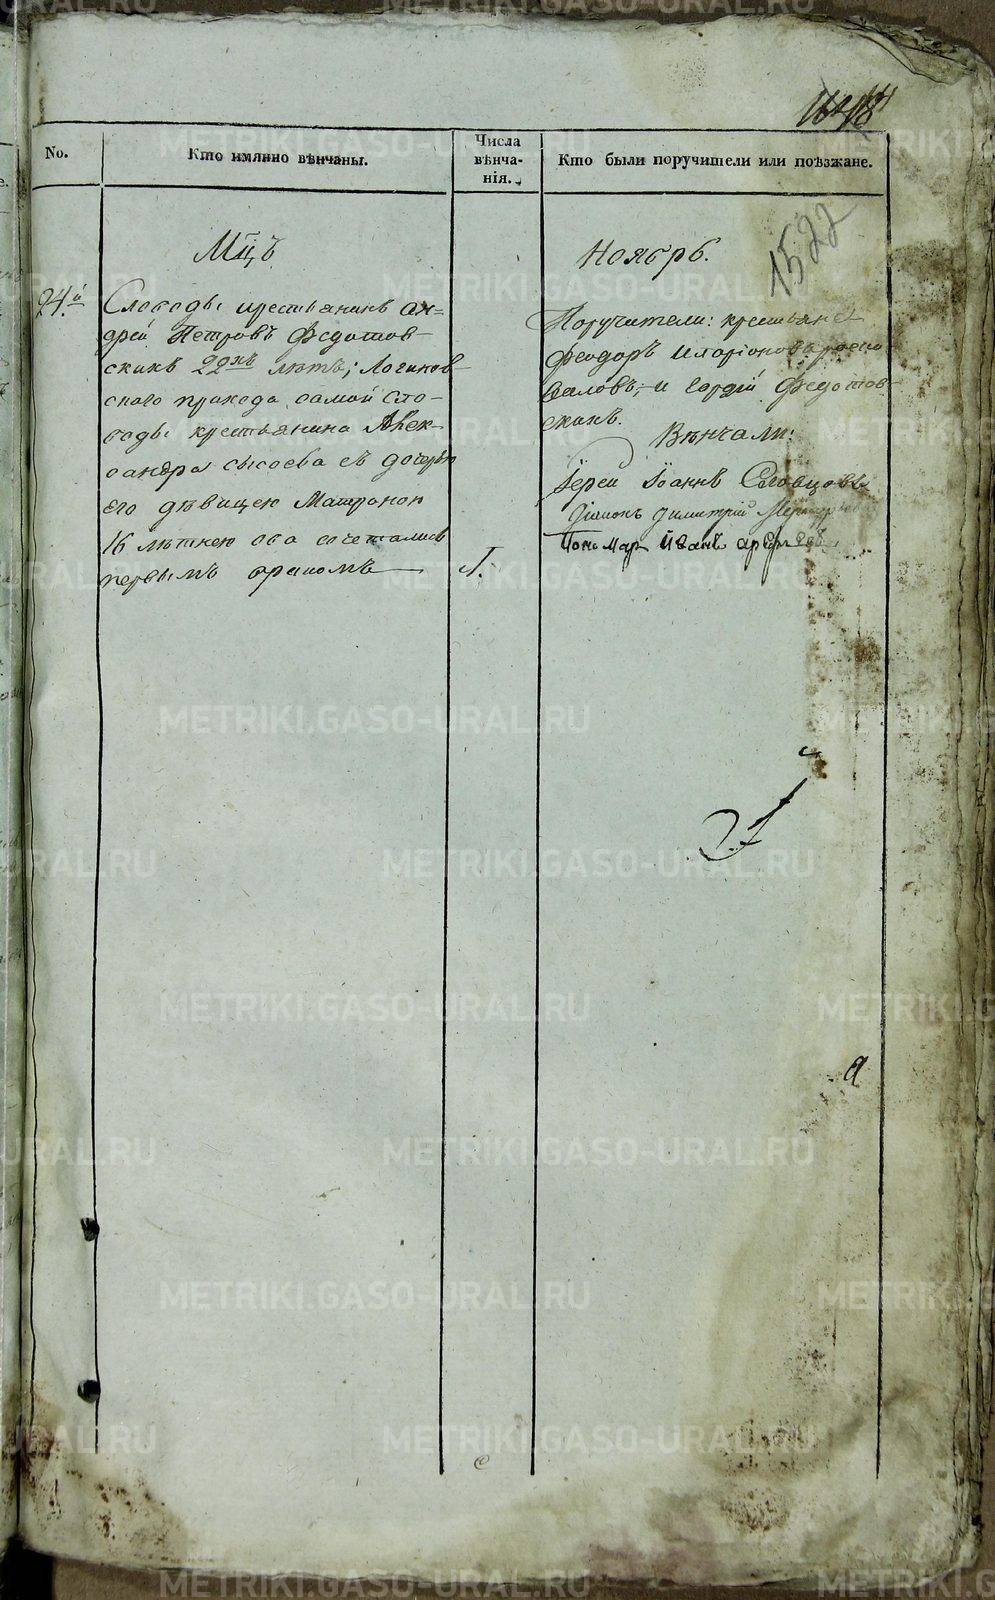 No.
Кто имянно вѣнчаны.
Числа
вѣнча-
нія.
Кто были поручители или поѣзжане.
1522
Мцъ
Ноябрь.
24.й
Слободы крестьянинъ Ан=
дрей Петровъ Федотов-
скихъ 22хъ лѣтъ; Логинов-
скаго прихода самой Сло-
боды крестьянина Алек-
сандра Сысоева съ дочерью
его дѣвицею Матроной
16 лѣтнею оба сочетались
первымъ бракомъ
1.
Поручители: крестьяне
Феодоръ Иларіоновъ
и Гордѣй Федотов-
скихъ.
Вѣнчали:
Іерей Іоаннъ Словцовъ
Діаконъ Димитрій
Пономарь Иванъ
METRIKI.GASO-URAL.RU